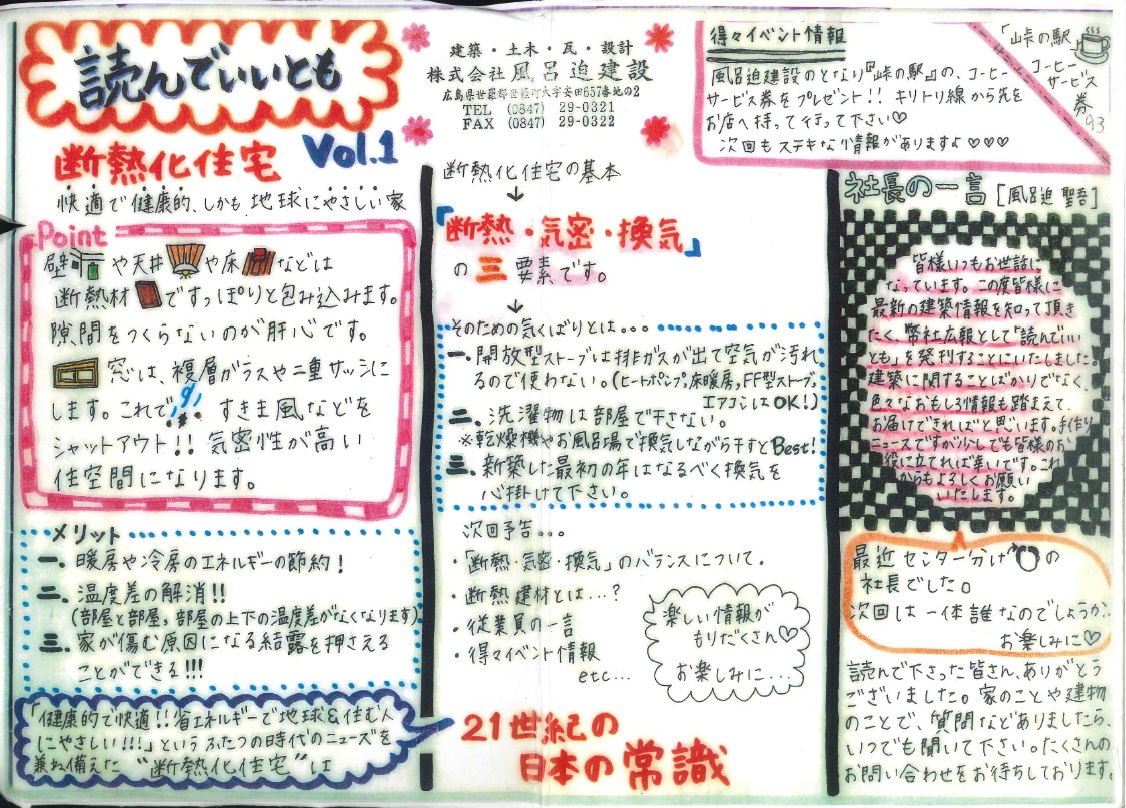 読んでいいとも
Vol.1
断熱化住宅
快適で健康的、しかも地球にやさしい家
Point
壁や天井や床などは
断熱材ですっぽりと包み込みます。
隙間をつくらないのが肝心です。
窓は、複層ガラスや二重サッシに
します。これですきま風などを
シャットアウト!! 気密性が高い
住空間になります。
メリット
一. 暖房や冷房のエネルギーの節約!
二. 温度差の解消!!
(部屋と部屋,部屋の上下の温度差がなくなります)
三. 家が傷む原因になる結露を押さえる
ことができる!!!
「健康的で快適!!省エネルギーで地球&住む人
にやさしい!!!」というふたつの時代のニューズを
兼ね備えた “断熱化住宅”は
21世紀の
日本の常識
建築・土木・瓦・設計
株式会社 風呂迫建設
広島県世羅郡世羅町大字安田657番地の2
TEL (0847) 29-0321
FAX (0847) 29-0322
断熱化住宅の基本
↓
「断熱・気密・換気」
の三要素です。
↓
そのための気くばりとは。。。
一. 開放型ストーブは排ガスが出て空気が汚れ
るので使わない。(ヒートポンプ,床暖房,FF型ストーブ,
エアコンはOK!)
二. 洗濯物は部屋で干さない。
※乾燥機やお風呂場で換気しながら干すとBest!
三. 新築した最初の年はなるべく換気を
心掛けて下さい。
次回予告...
・「断熱・気密・換気」のバランスについて.
・断熱建材とは...?
・従業員の一言
・得々イベント情報
etc...
楽しい情報が
もりだくさん♡
お楽しみに...
得々イベント情報
風呂迫建設のとなり『峠の駅』の、コーヒー
サービス券をプレゼント!! キリトリ線から先を
お店へ持って行って下さい♡
次回もステキな情報がありますよ♡♡♡
「峠の駅」
コーヒー
サービス
券
社長の一言 [風呂迫 聖吾]
皆様いつもお世話に
なっています。この度皆様に
最新の建築情報を知って頂き
たく、弊社広報として「読んでいい
とも」を発刊することにいたしました。
建築に関することばかりでなく、
色々なおもしろ情報も踏まえて、
お届けできればと思います。手作り
ニュースですが少しでも皆様のお
役に立てれば幸いです。これ
からもよろしくお願い
いたします。
最近センター分けの
社長でした。
次回は一体誰なのでしょうか?
お楽しみに♡
読んで下さった皆さん、ありがとう
ございました。家のことや建物
のことで、質問などありましたら、
いつでも聞いて下さい。たくさんの
お問い合わせをお待ちしております。